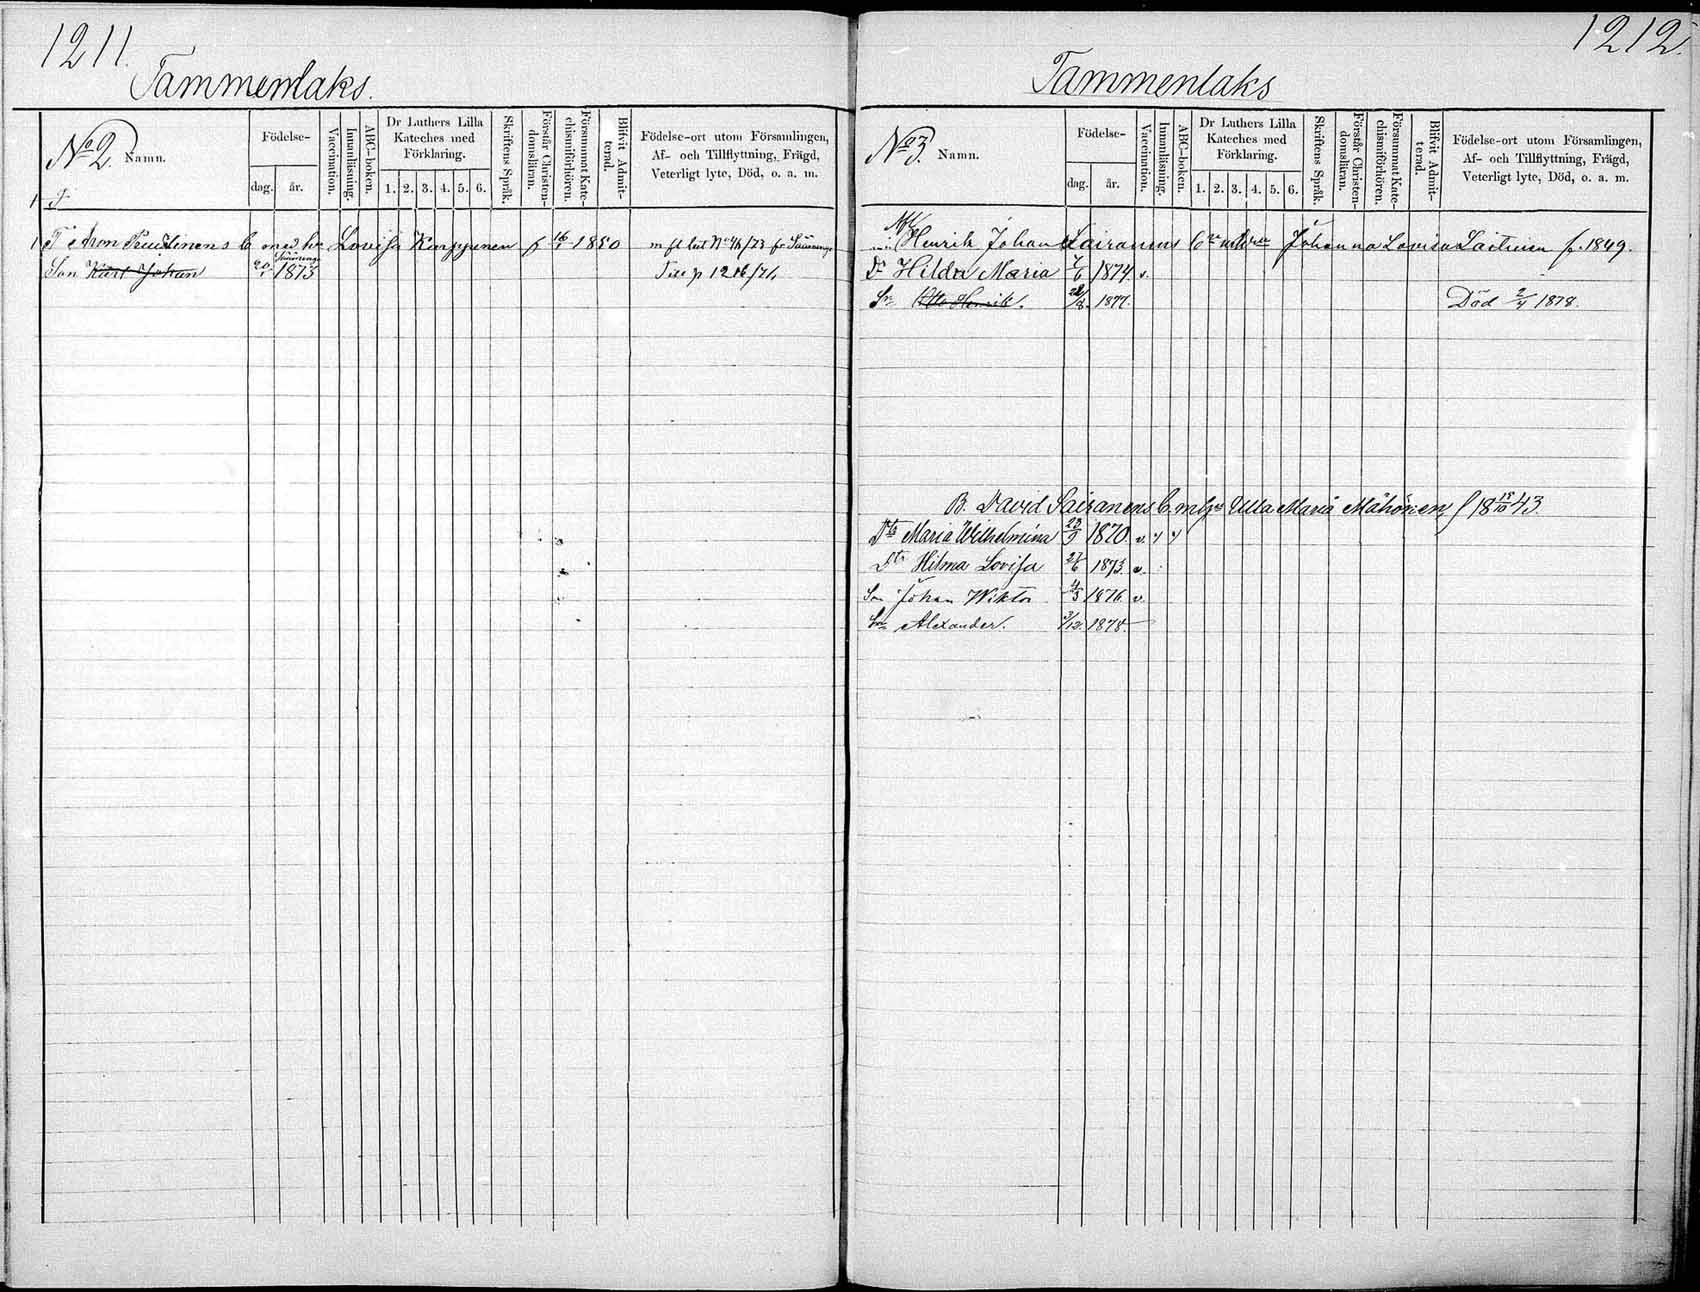 1211.
Tammenlaks.
No 2. Namn.
Födelse-
dag. år.
Vaccination.
Innanläsning.
ABC-boken.
Dr Luthers Lilla Kateches med Förklaring.
1. 2. 3. 4. 5. 6.
Skriftens Språk.
Förstår Christendomsläran.
Försummat Katechismiförhören.
Blifvit Admitterad.
Födelse-ort utom Församlingen,
Af- och Tillflyttning, Frägd,
Veterligt lyte, Död, o. a. m.
Aron Pruutinens C med h Lovisa Kurppinen f 16/7 1850
Son Karl Johan 1873 Till p 1216/74
1212.
Tammenlaks
No 3. Namn.
Födelse-
dag. år.
Vaccination.
Innanläsning.
ABC-boken.
Dr Luthers Lilla Kateches med Förklaring.
1. 2. 3. 4. 5. 6.
Skriftens Språk.
Förstår Christendomsläran.
Försummat Katechismiförhören.
Blifvit Admitterad.
Födelse-ort utom Församlingen,
Af- och Tillflyttning, Frägd,
Veterligt lyte, Död, o. a. m.
Henrik Johan Sairanens Johanna Lovisa Laitinen f. 1849.
Dr Hilda Maria 7/6 1874 v.
Sn Otto Henrik. 1877. Död 2/4 1878.
B. David Sairanens C. m h Ulla Maria Mähönen f 18 18/10 43.
Dtr Maria Wilhelmina 23/9 1870. v. y y
Dtr Hilma Lovisa 27/6 1873. v.
Son Johan Wiktor 4/3 1876 v.
Son Alexander. 3/12. 1878.